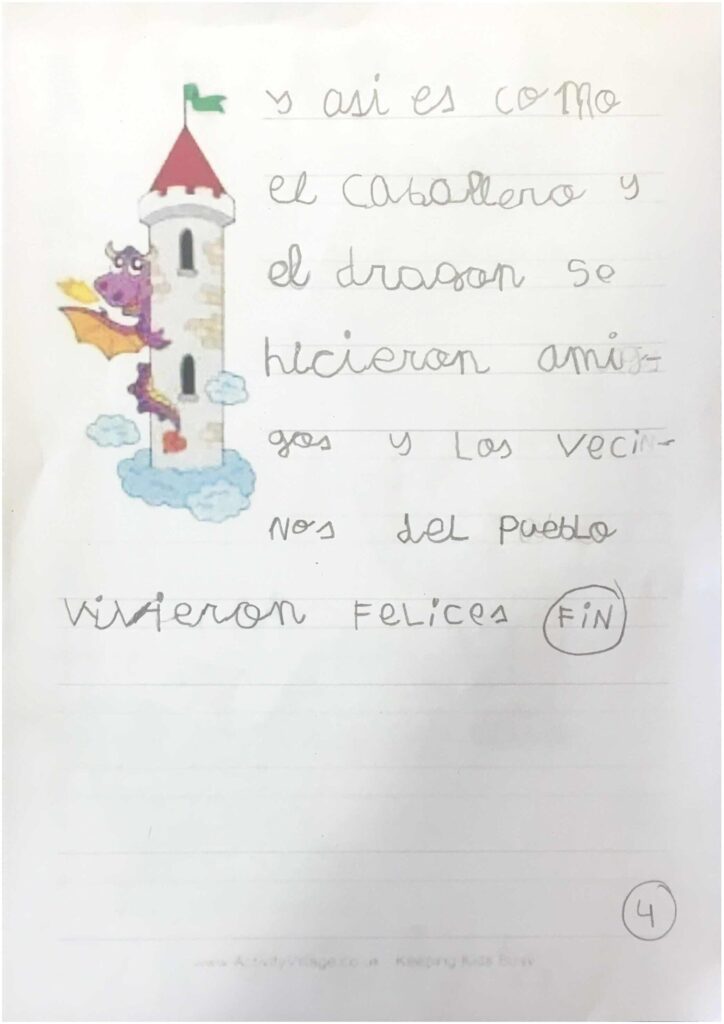 y asi es como
el caballero y
el dragon se
hicieron ami-
gos y Los veci-
Nos del pueblo
vivieron Felices FiN
4
www.ActivityVillage.co.uk Keeping Kids Busy